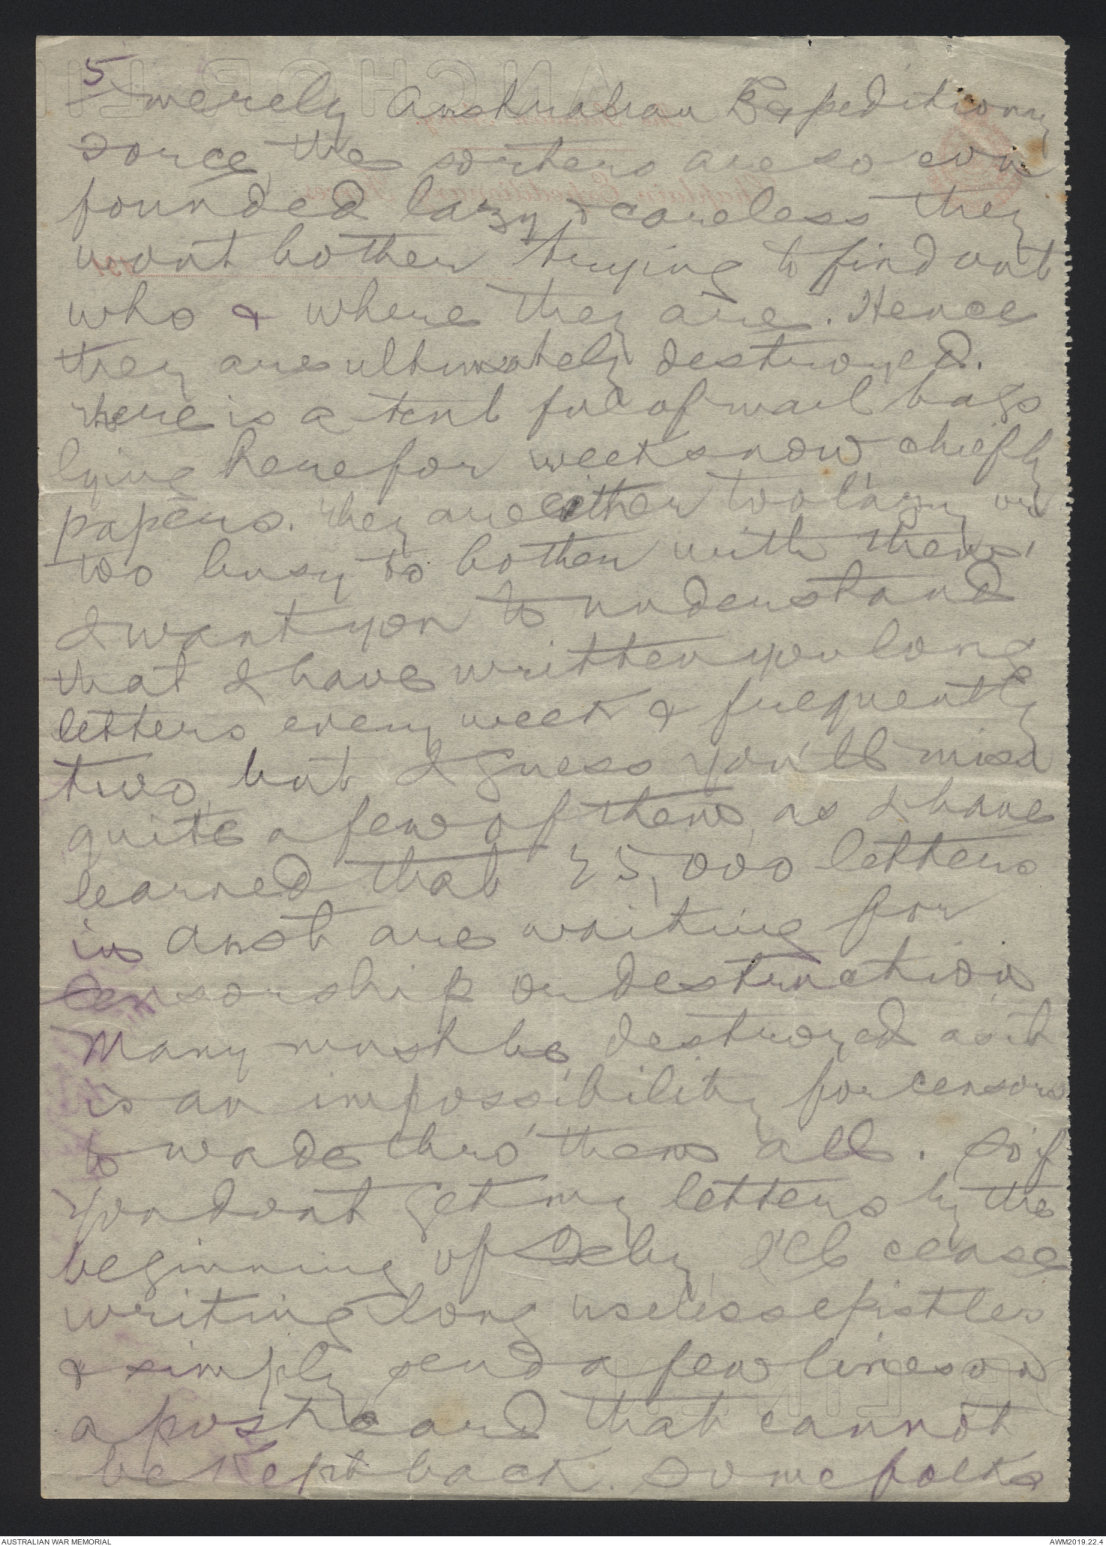 5
merely Australian Expeditionary
Force, the sorters are so con
founded lazy & careless they
wont bother trying to find out
who & where they are. Hence
they are ultimately destroyed.
There is a tent full of mail bags
lying here for weeks now chiefly
papers. They are either too lazy or
too busy to bother with them.
I want you to understand
that I have written you long
letters every week & frequently
two, but I guess you'll miss
quite a few of them, as I have
learned that 25,000 letters
in Aust are waiting for
censorship or destruction.
Many must be destroyed as it
is an impossibility for censors
to wade thro' them all. So if
you dont get my letters by the
beginning of July, I'll cease
writing long useless epistles
& simply send a few lines on
a post card that cannot
be kept back. Some folks
AUSTRALIAN WAR MEMORIAL
AWM2019.22.4